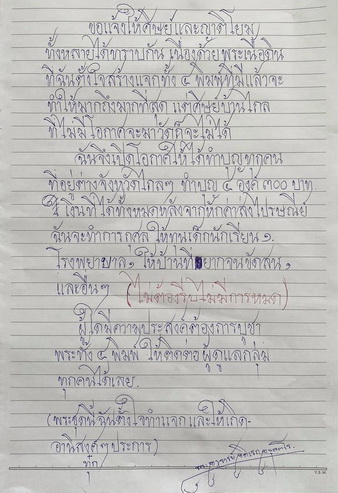 ขอแจ้งให้ศิษย์และญาติโยม
ทั้งหลายได้ทราบกัน เนื่องด้วยพระเนื้อดิน
ที่ฉันตั้งใจสร้างแจกทั้ง ๔ พิมพ์ที่มีแล้วจะ
ทำให้มากถึงมากที่สุด แต่ศิษย์บ้านไกล
ที่ไม่มีโอกาศจะมาวัดก็จะไม่ได้
ฉันจึงเปิดโอกาศให้ได้ทำบุญทุกคน
ที่อยู่ต่างจังหวัดไกลๆ ทำบุญ ๔ องค์ ๓๐๐ บาท
เงินที่ได้ทั้งหมดหลังจากหักค่าส่งไปรษณีย์
ฉันจะทำการกุศล ให้ทุนเด็กนักเรียน ๑.
โรงพยาบาล, ให้บ้านที่ยากจนขัดสน,
และอื่นๆ (ไม่ต้องรีบไม่มีการหมด)
ผู้ใดมีความประสงค์ต้องการบูชา
พระทั้ง ๔ พิมพ์ ให้ติดต่อ ผู้ดูแลกลุ่ม
ทุกคนได้เลย.
(พระชุดนี้ฉันตั้งใจทำแจก และให้เกิด-
อานิสงค์ๆประการ)